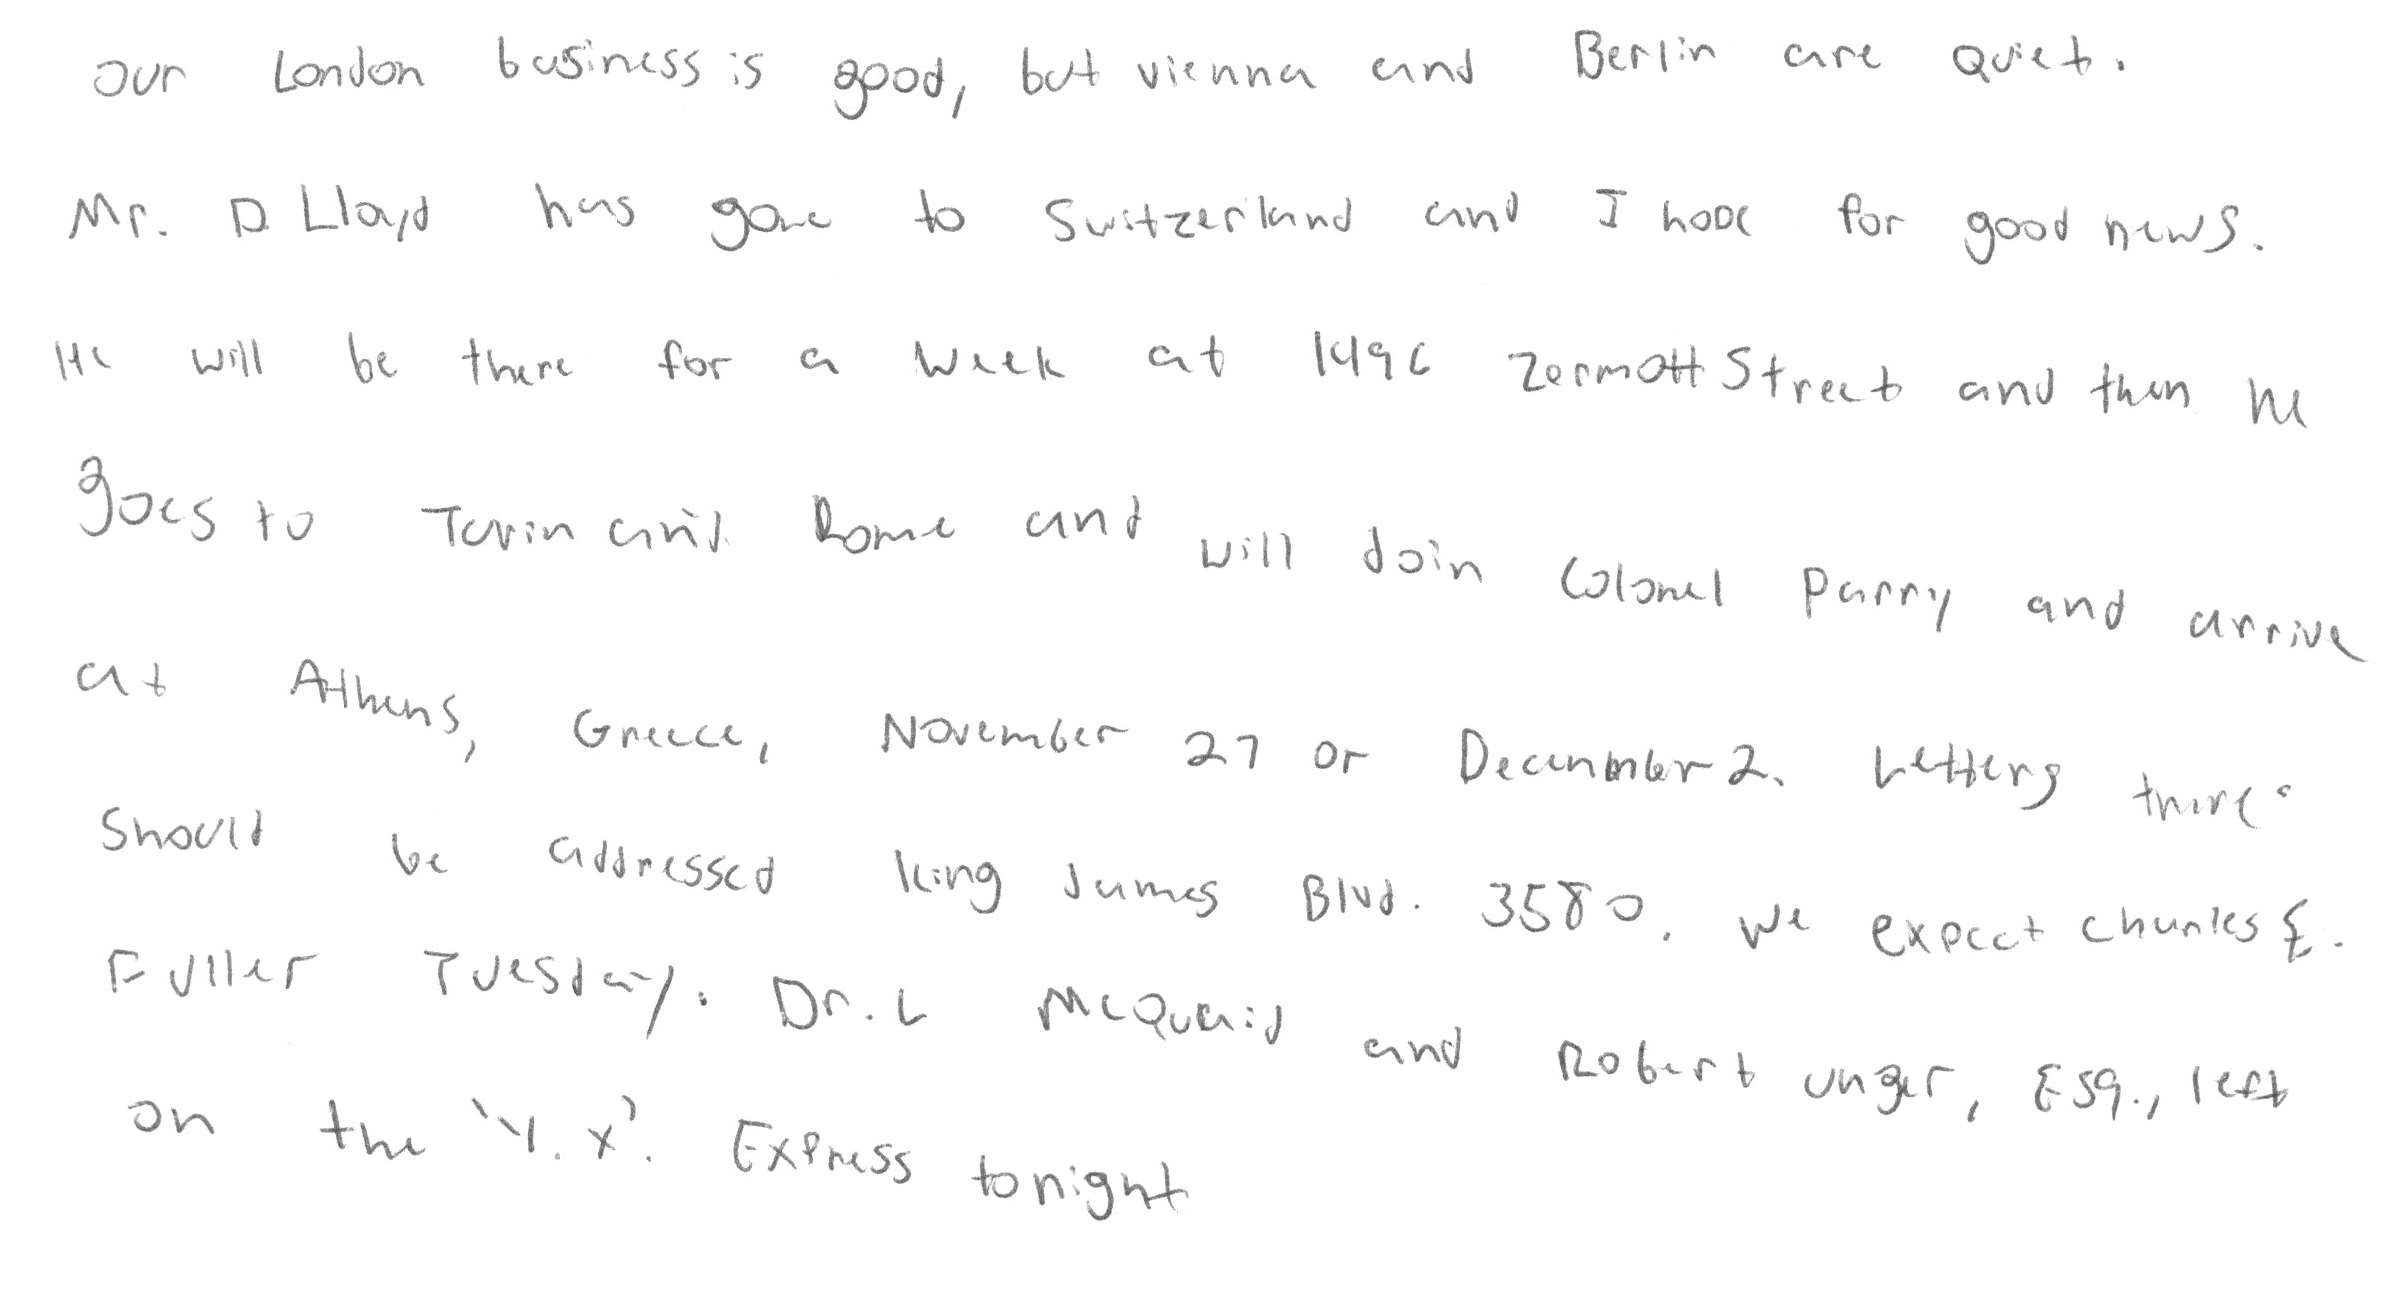 our London business is good, but vienna and Berlin are quiet.
Mr. D. Lloyd has gone to Switzerland and I hope for good news.
He will be there for a week at 1496 Zermott Street and then he
goes to Turin and Rome and will join Colonel Parry and arrive
at Athens, Greece, November 27 or December 2. Letters there
Should be addressed King James Blvd. 3580. We expect Charles E.
Fuller Tuesday. Dr. L McQuaid and Robert unger, Esq., left
on the 'Y. X'. Express tonight